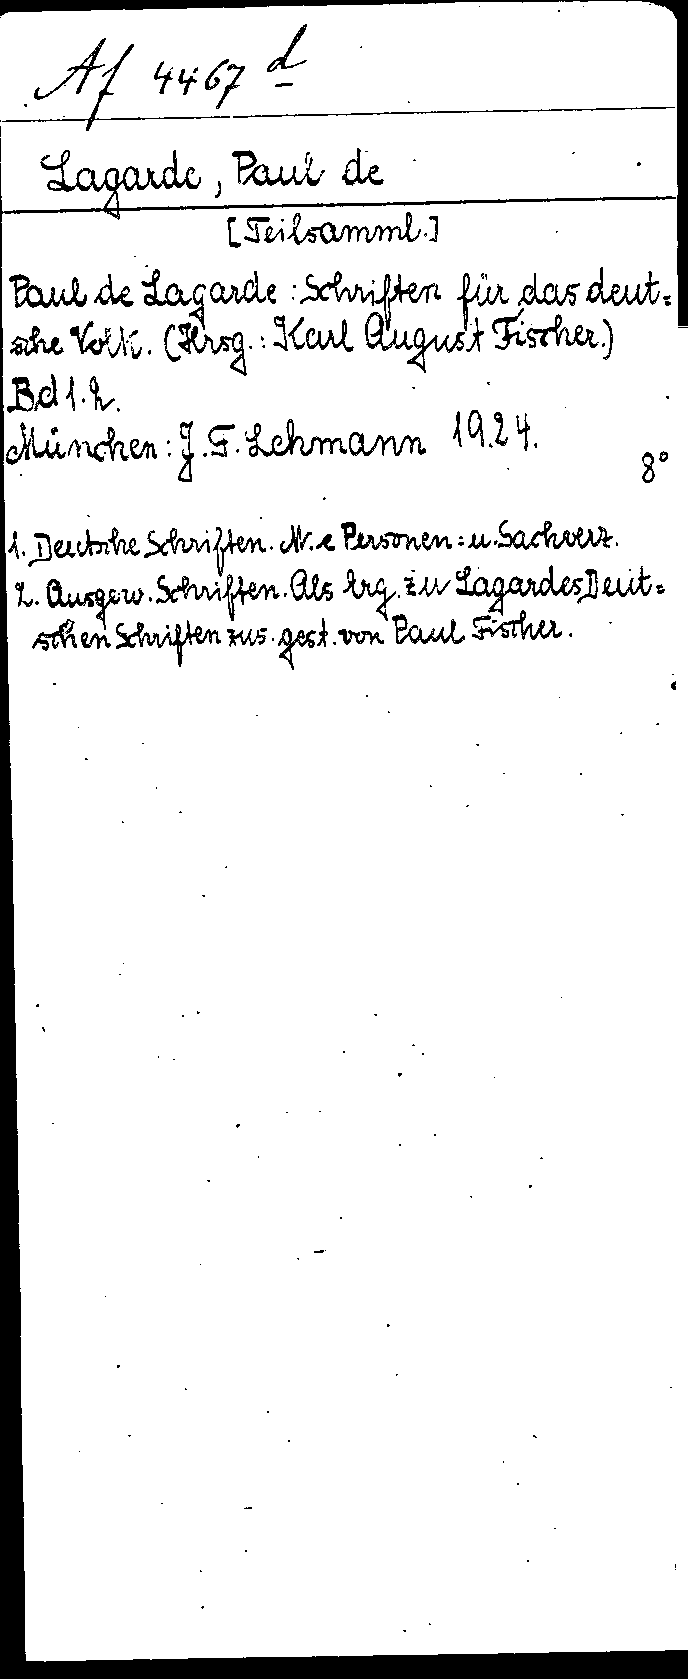 Af 4467 d
Lagarde, Paul de
[Teilsamml.]
Paul de Lagarde: Schriften für das deut=
sche Volk. (Hrsg.: Karl August Fischer.)
Bd 1. 2.
München: J. F. Lehmann 1924.
8°
1. Deutsche Schriften. M. e Personen= u. Sachverz.
2. Ausgew. Schriften. Als Erg. zu Lagardes Deut=
schen Schriften zus. gest. von Paul Fischer.